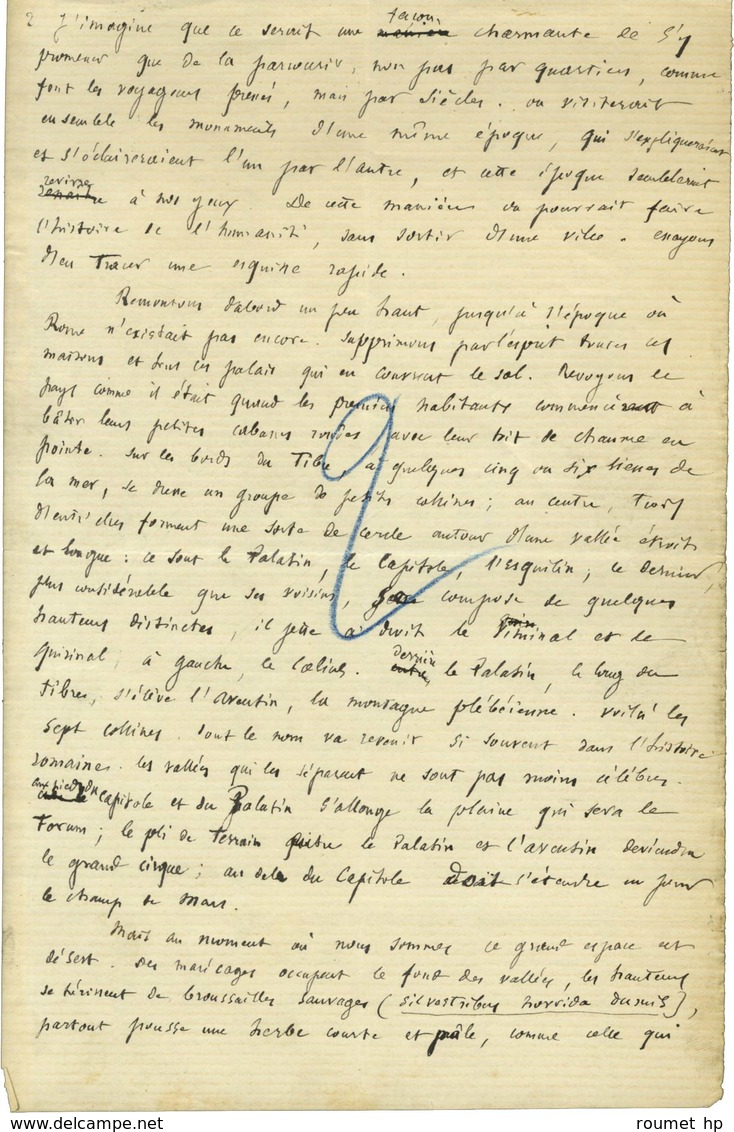 2 J'imagine que ce serait une façon charmante de s'y
promener que de la parcourir, non pas par quartiers, comme
font les voyageurs pressés, mais par siècles. on visiterait
ensemble les monuments d'une même époque, qui s'expliqueraient
et s'éclaireraient l'un par l'autre, et cette époque semblerait
revivre à nos yeux. De cette manière on pourrait faire
l'histoire de l'humanité, sans sortir d'une ville. essayons
d'en tracer une esquisse rapide.
Remontons d'abord un peu haut, jusqu'à l'époque où
Rome n'existait pas encore. supprimons par l'esprit toutes ces
maisons et tous ces palais qui en couvrent le sol. Revoyons le
pays comme il était quand les premiers habitants commencèrent à
bâtir leurs petites cabanes rondes avec leur toit de chaume en
pointe. sur les bords du Tibre, à quelques cinq ou six lieues de
la mer, se dresse un groupe de petites collines ; au centre, trois
d'entr'elles forment une sorte de cercle autour d'une vallée étroite
et longue : ce sont le Palatin, le Capitole, l'Esquilin ; ce dernier,
plus considérable que ses voisins, se compose de quelques
hauteurs distinctes, il jette à droite le Viminal et le
Quirinal, à gauche, le Cælius. derrière le Palatin, le long du
Tibre, s'élève l'aventin, la montagne plébéienne. voilà les
sept collines dont le nom va revenir si souvent dans l'histoire
romaine. les vallées qui les séparent ne sont pas moins célèbres.
aux pieds du capitole et du Palatin s'allonge la plaine qui sera le
Forum ; le pli de terrain entre le Palatin et l'aventin deviendra
le grand cirque ; au delà du Capitole doit s'étendre un jour
le champ de Mars.
Mais au moment où nous sommes ce grand espace est
désert. des marécages occupent le fond des vallées, les hauteurs
se hérissent de broussailles sauvages (silvestribus horrida dumis),
partout pousse une herbe courte et pâle, comme celle qui
roumet hp